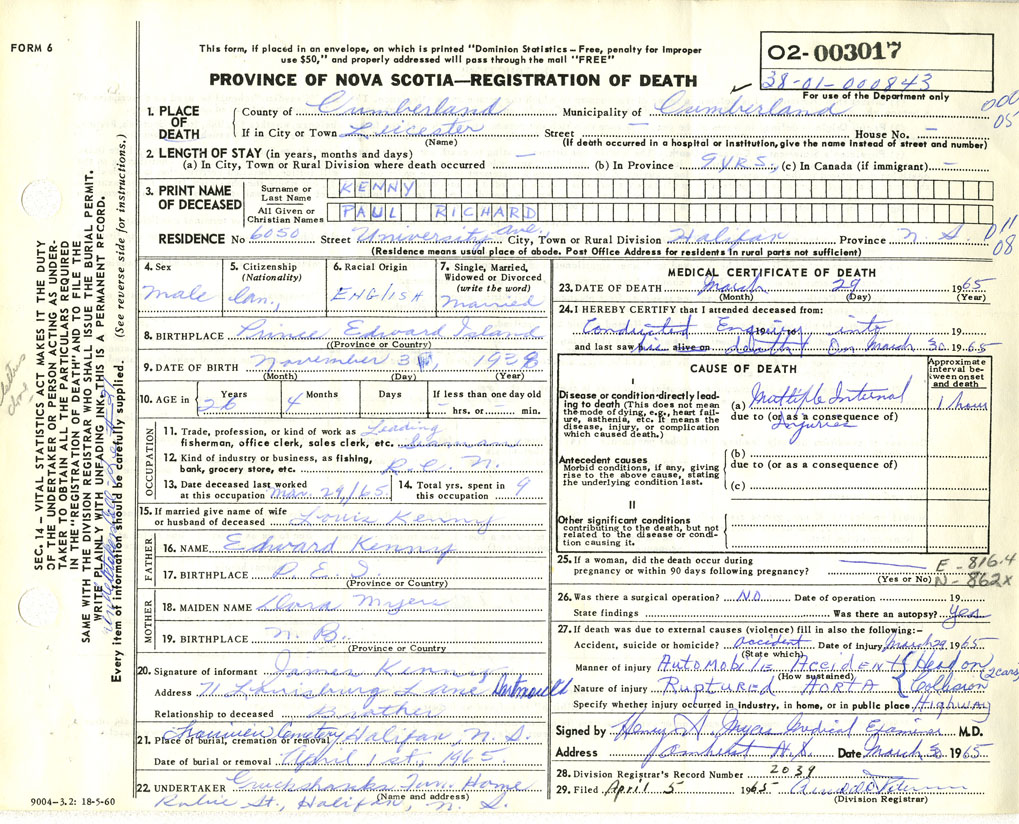 FORM 6
This form, if placed in an envelope, on which is printed "Dominion Statistics – Free, penalty for improper
use $50," and properly addressed will pass through the mail "FREE"
PROVINCE OF NOVA SCOTIA—REGISTRATION OF DEATH
02-003017
38-01-000843
For use of the Department only
1. PLACE OF DEATH
County of Cumberland Municipality of Cumberland
If in City or Town Leicester Street — House No. —
(Name) (If death occurred in a hospital or institution, give the name instead of street and number)
2. LENGTH OF STAY (in years, months and days)
(a) In City, Town or Rural Division where death occurred — (b) In Province 9 YRS. (c) In Canada (if immigrant) —
3. PRINT NAME OF DECEASED
Surname or Last Name KENNY
All Given or Christian Names PAUL RICHARD
RESIDENCE No 6050 Street University ave. City, Town or Rural Division Halifax Province N. S.
(Residence means usual place of abode. Post Office Address for residents in rural parts not sufficient)
011
08
4. Sex
male
5. Citizenship (Nationality)
Can.,
6. Racial Origin
ENGLISH
7. Single, Married, Widowed or Divorced (write the word)
Married
8. BIRTHPLACE Prince Edward Island
(Province or Country)
9. DATE OF BIRTH November 3, 1938
(Month) (Day) (Year)
10. AGE in 26 Years 4 Months Days If less than one day old
— hrs. or — min.
OCCUPATION
11. Trade, profession, or kind of work as Leading
fisherman, office clerk, sales clerk, etc. Seaman
12. Kind of industry or business, as fishing,
bank, grocery store, etc. R.C.N.
13. Date deceased last worked
at this occupation Mar. 29,/65
14. Total yrs. spent in
this occupation 9
15. If married give name of wife
or husband of deceased Louis Kenny
FATHER
16. NAME Edward Kenny
17. BIRTHPLACE P.E.I.
(Province or Country)
MOTHER
18. MAIDEN NAME Dora Myers
19. BIRTHPLACE N. B.
(Province or Country
20. Signature of informant James Kenny
Address 71 Louisburg Lane Dartmouth
Relationship to deceased Brother
21. Place of burial, cremation or removal Cemetery, Halifax, N. S.
Date of burial or removal April 1st, 1965
22. UNDERTAKER Cruickshanks Fun. Home
(Name and address)
St., Halifax, N. S.
9004-3.2: 18-5-60
MEDICAL CERTIFICATE OF DEATH
23. DATE OF DEATH March 29 1965
(Month) (Day) (Year)
24. I HEREBY CERTIFY that I attended deceased from:
Conducted Enquiry into 19
and last saw his alive on death On March 30 1965
CAUSE OF DEATH
Approximate interval between onset and death
I
Disease or condition directly leading to death (This does not mean the mode of dying, e.g., heart failure, asthenia, etc. It means the disease, injury, or complication which caused death.)
(a) Multiple Internal 1 hour
due to (or as a consequence of)
Injuries
Antecedent causes
Morbid conditions, if any, giving rise to the above cause, stating the underlying condition last.
(b)
due to (or as a consequence of)
(c)
II
Other significant conditions
contributing to the death, but not related to the disease or condition causing it.
25. If a woman, did the death occur during
pregnancy or within 90 days following pregnancy?
(Yes or No)
E - 816.4
N - 862X
26. Was there a surgical operation? NO Date of operation 19
State findings Was there an autopsy? Yes
27. If death was due to external causes (violence) fill in also the following:–
Accident, suicide or homicide? Accident Date of injury March 29 1965
(State which)
Manner of injury AUTOMOBILE ACCIDENT (Head on 2 cars
(How sustained)
Nature of injury RUPTURED AORTA Collision
Specify whether injury occurred in industry, in home, or in public place Highway
Signed by Medical Examiner M.D.
Address Amherst N.S. Date March 30 1965
28. Division Registrar's Record Number 2039
29. Filed April 5 1965
(Division Registrar)
SEC. 14 – VITAL STATISTICS ACT MAKES IT THE DUTY
OF THE UNDERTAKER OR PERSON ACTING AS UNDERTAKER
TO OBTAIN ALL THE PARTICULARS REQUIRED
IN THE "REGISTRATION OF DEATH" AND TO FILE THE
SAME WITH THE DIVISION REGISTRAR WHO SHALL ISSUE THE BURIAL PERMIT.
WRITE PLAINLY WITH UNFADING INK–THIS IS A PERMANENT RECORD.
Every item of information should be carefully supplied. (See reverse side for instructions.)